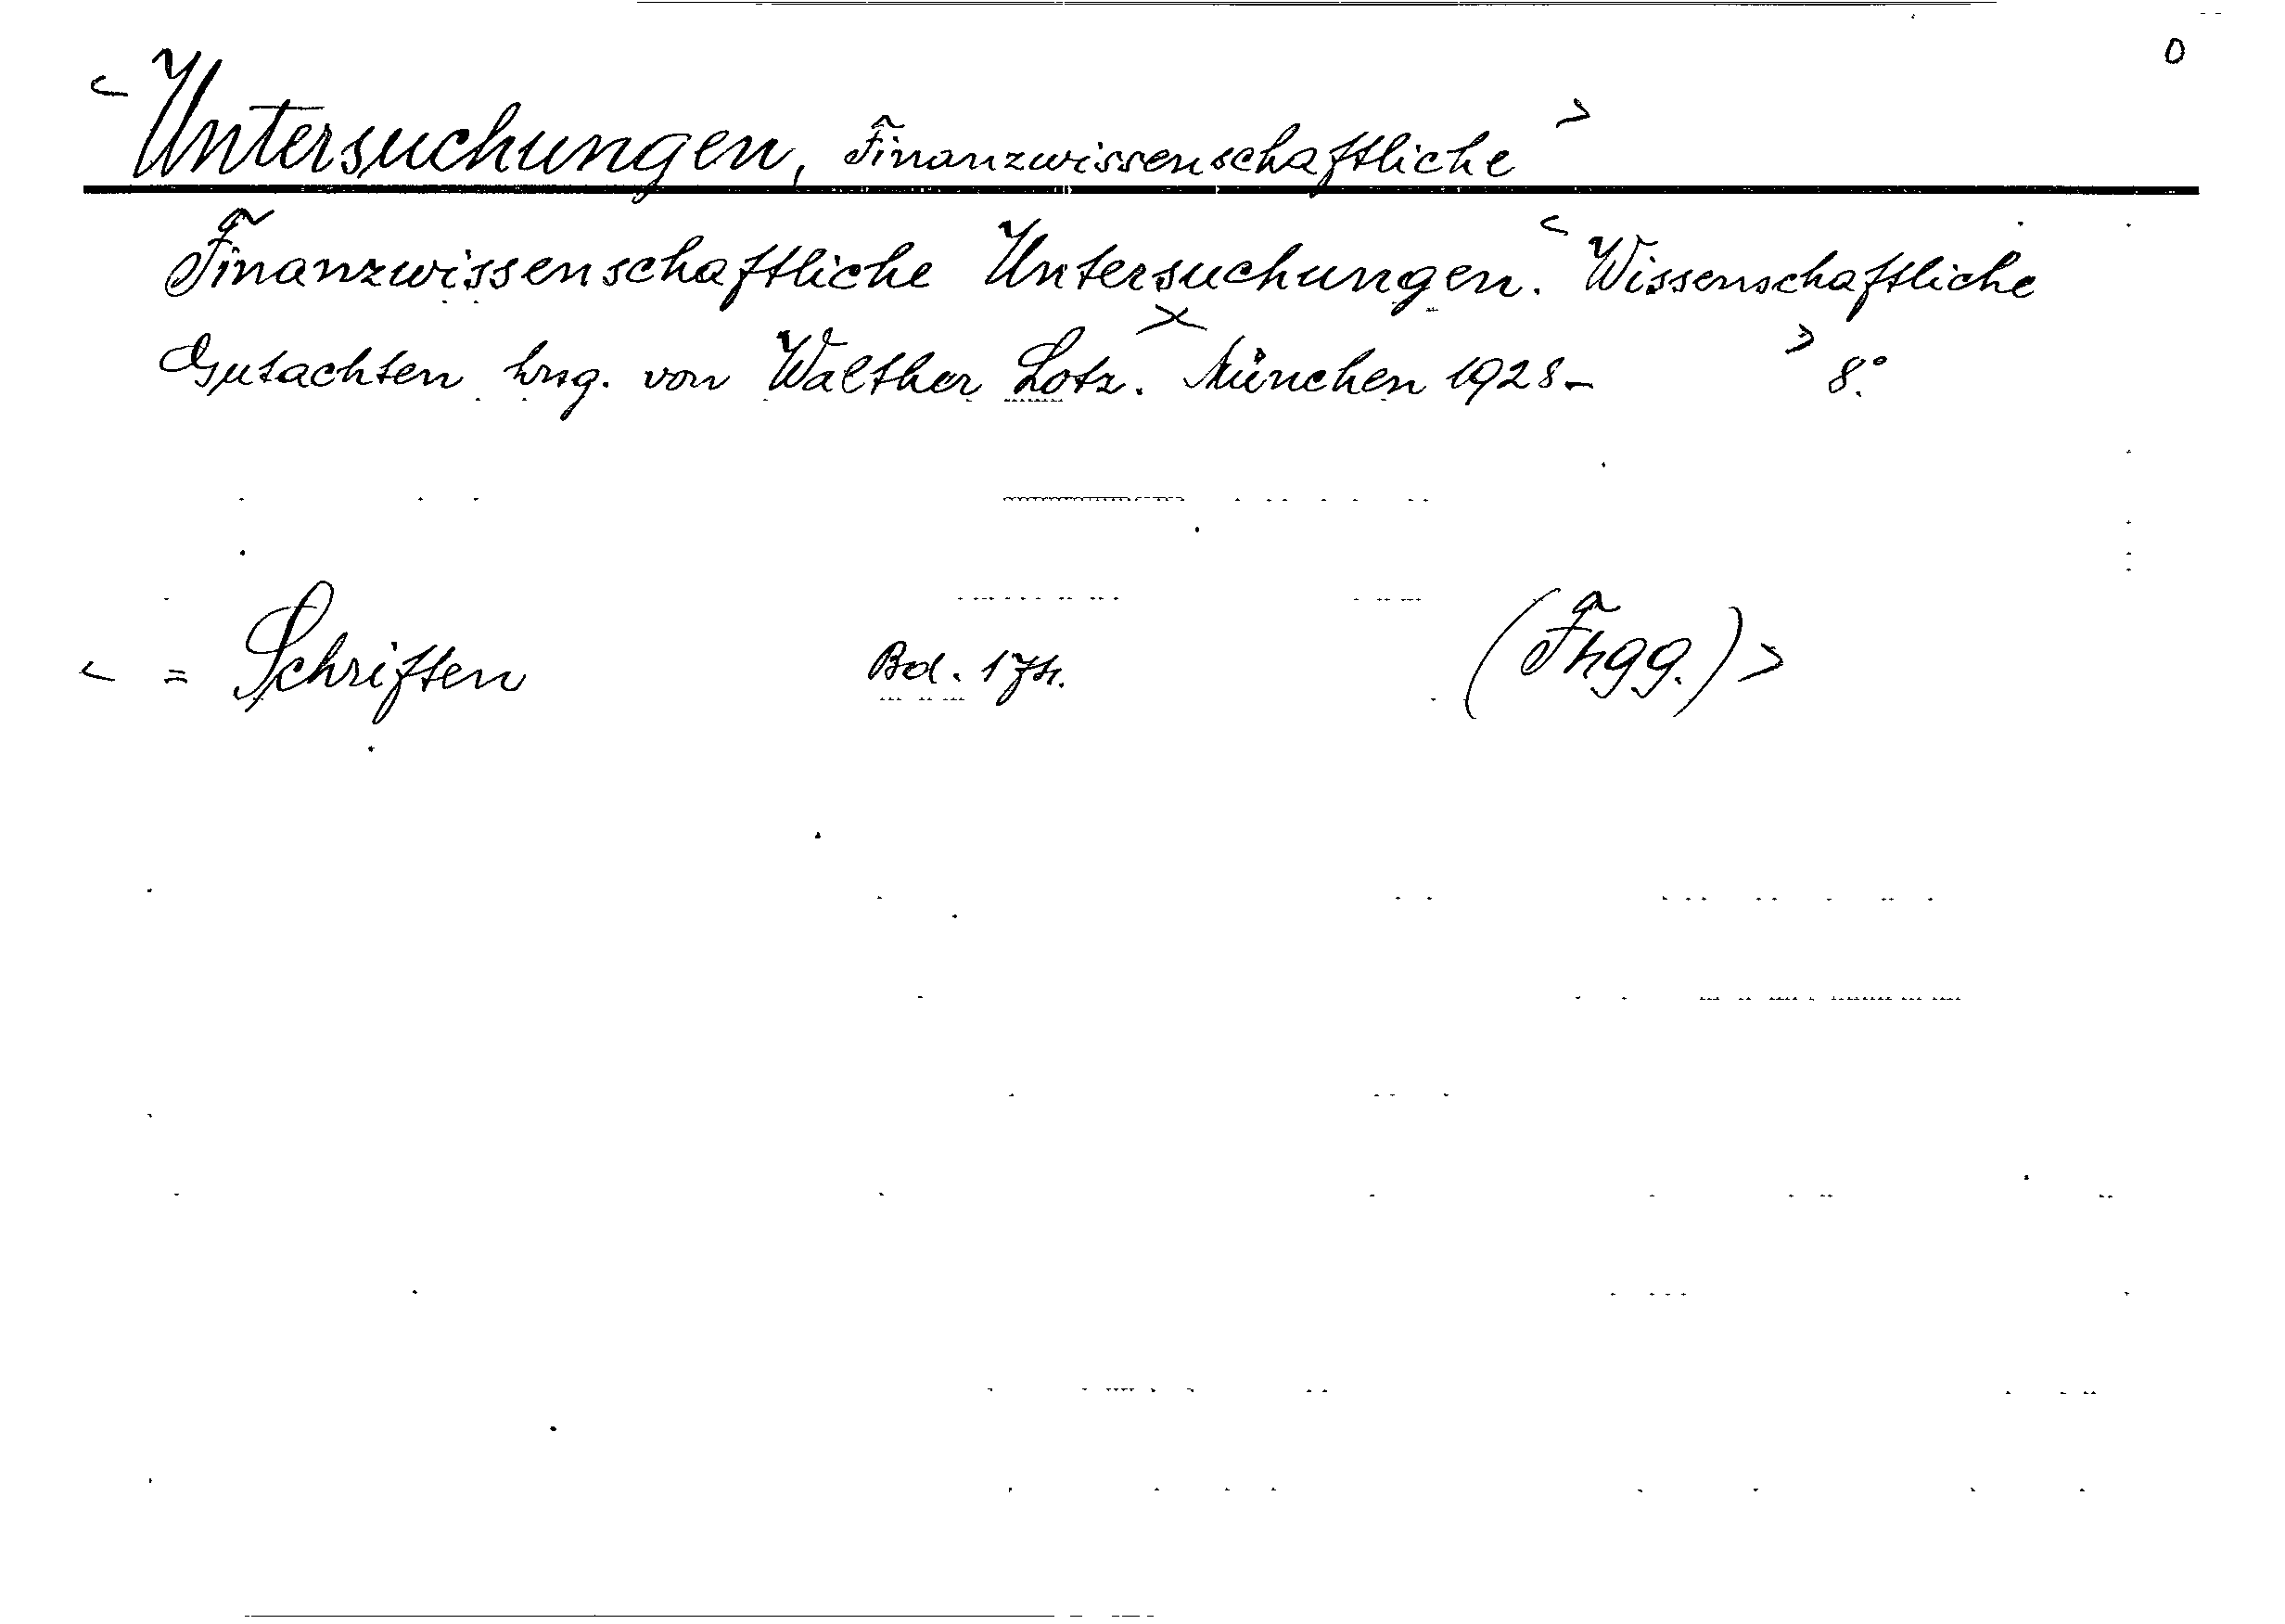 0
< Untersuchungen, Finanzwissenschaftliche >
Finanzwissenschaftliche Untersuchungen. < Wissenschaftliche
Gutachten hrsg. von Walther Lotz. > München 1928- > 8°.
< = Schriften Bd. 174. (Fhgg.) >